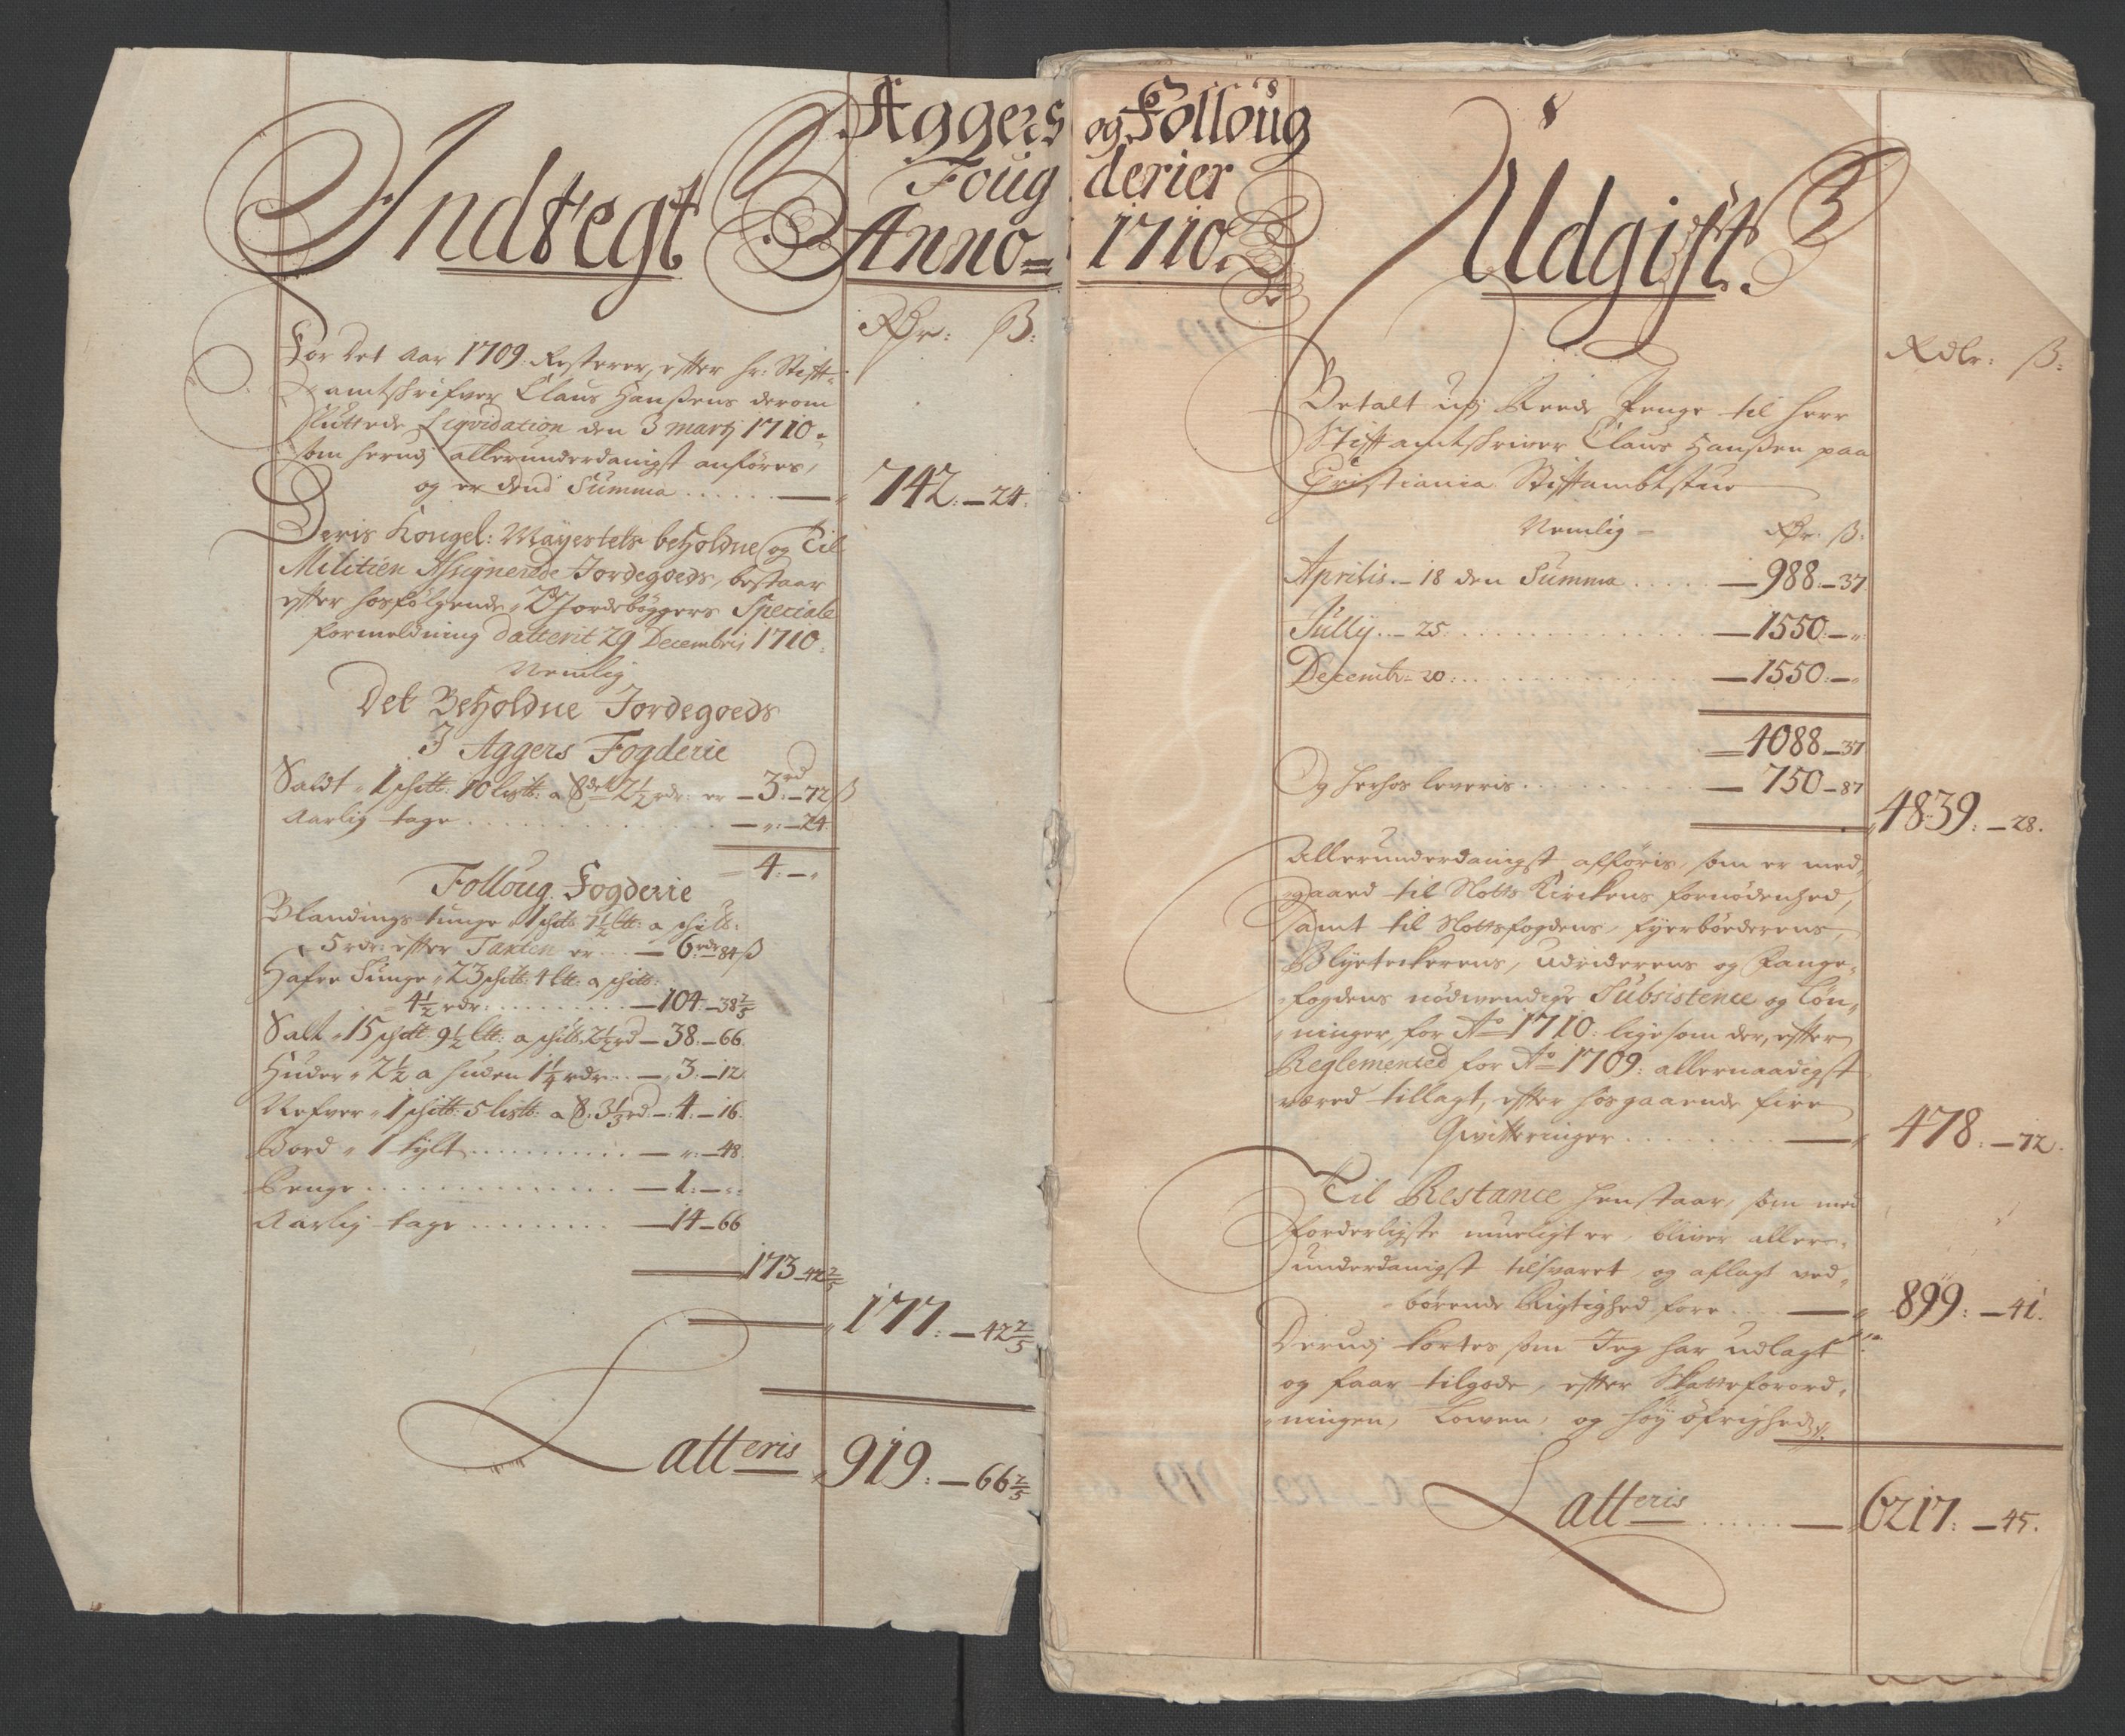 Aggers og Folloug
Foug derier
Anno= 1710.
Indtegt
Rdr: ß:
For Det Aar 1709. Resterer, efter hr: Stifft-
amtskrifver Claus Hanßens derom
sluttede Liqvidation den 3 martj 1710.
som herudj allerunderdanigst anføres,
og er dend Summa ...... — 742: — 24.
Deris Kongel: Mayestets beholdne og Til
Militien Assignerede Jordegoeds, bestaar
efter hosfølgende 2de Jordebøggers Speciale
formeldning datterit 29 Decembris 1710.
Nemlig
Det Beholdne Jordegoeds
I Aggers Fogderie
Saldt 1 schitt: 10 listt: a 8de 2½ rdr: er — 3rd — 72 ß
Aarlig tage ............ — „: — 24.
= 4: — „
Folloug. Fogderie
Blandings tunge 1 schtt: 7½ ltt: a schitt:
5 rdr: efter Taxten er ... — 6 rdr 84 ß
Hafre Tunge 23 schtt: 4 ltt: a schtt:
4½ rdr: ......... — 104. — 38 2/5
Salt 15 schtt 9½ ltt: a schtt. 2½ rd — 38. — 66.
Huder 2½ a huden 1¼ rdr .. — 3. — 12.
Nefver 1 schitt: 5 listt: a 8. 3⅓ rd. — 4. — 16.
Bord 1 tylt .......... — „: — 48.
Penge ............ — 1: — „:
Aarlig tage ......... — 14 — 66
173 — 42 2/5
177: — 42 2/5
Latteris 919: — 66 2/5
Udgift.
Rdlr: ß:
Betalt udj Reede Penge til Herr
Stifftamtskriver Claus Hanßen paa
Christiania Stifftambtstue
Nemlig — Rdr: ß:
Aprilis. — 18 den Summa ..... — 988. — 37.
Jullij. — 25. ............ — 1550: — „
Decembr: 20: ............ — 1550: — „
4088 — 37
Og herhos leveris ......... — 750 — 87
4839: — 28.
Allerunderdanigst afføris, som er med-
gaaed til Slotts Kirckens fornødenhed,
samt til Slottsfogdens, fyerbøderens,
Blyetekerens, Udriderens og Fange-
fogdens nødwendige Subsistence og Løn-
ninger, for Ao 1710: lige som der, efter
Reglemented for Ao 1709: allernaadigst
væred tillagt, efter hosgaaende fire
Qvitteringer ......... — 478: — 72.
Til Restance henstaar, som med
forderligste mueligt er, bliver aller-
underdanigst tilsvaret, og aflagt ved-
børende Rigtighed fore .... — 899: — 41.
Derudj kortes som Jeg har udlagt
og faar tilgode, efter Skatteforord-
ningen, Lowen, og høy øfrighed
Latteris ...... — 6217: — 45.